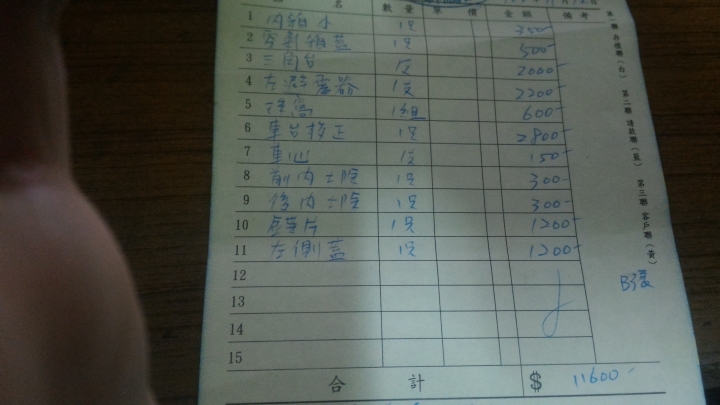 名 數量 單價 金額 備考
1 內箱水 1只 350-
2 1只 500-
3 三角台 1只 2000-
4 左避震器 1支 2200-
5 1組 600-
6 車台校正 1只 2800-
7 車心 1支 150-
8 前內土除 1只 300-
9 後內土除 1只 300-
10 1只 1200-
11 左側蓋 1只 1200-
12
13
14
15
合計 $ 11600-
第一聯 存根聯(白) 第二聯 請款聯(藍) 第三聯 客戶聯(黃)